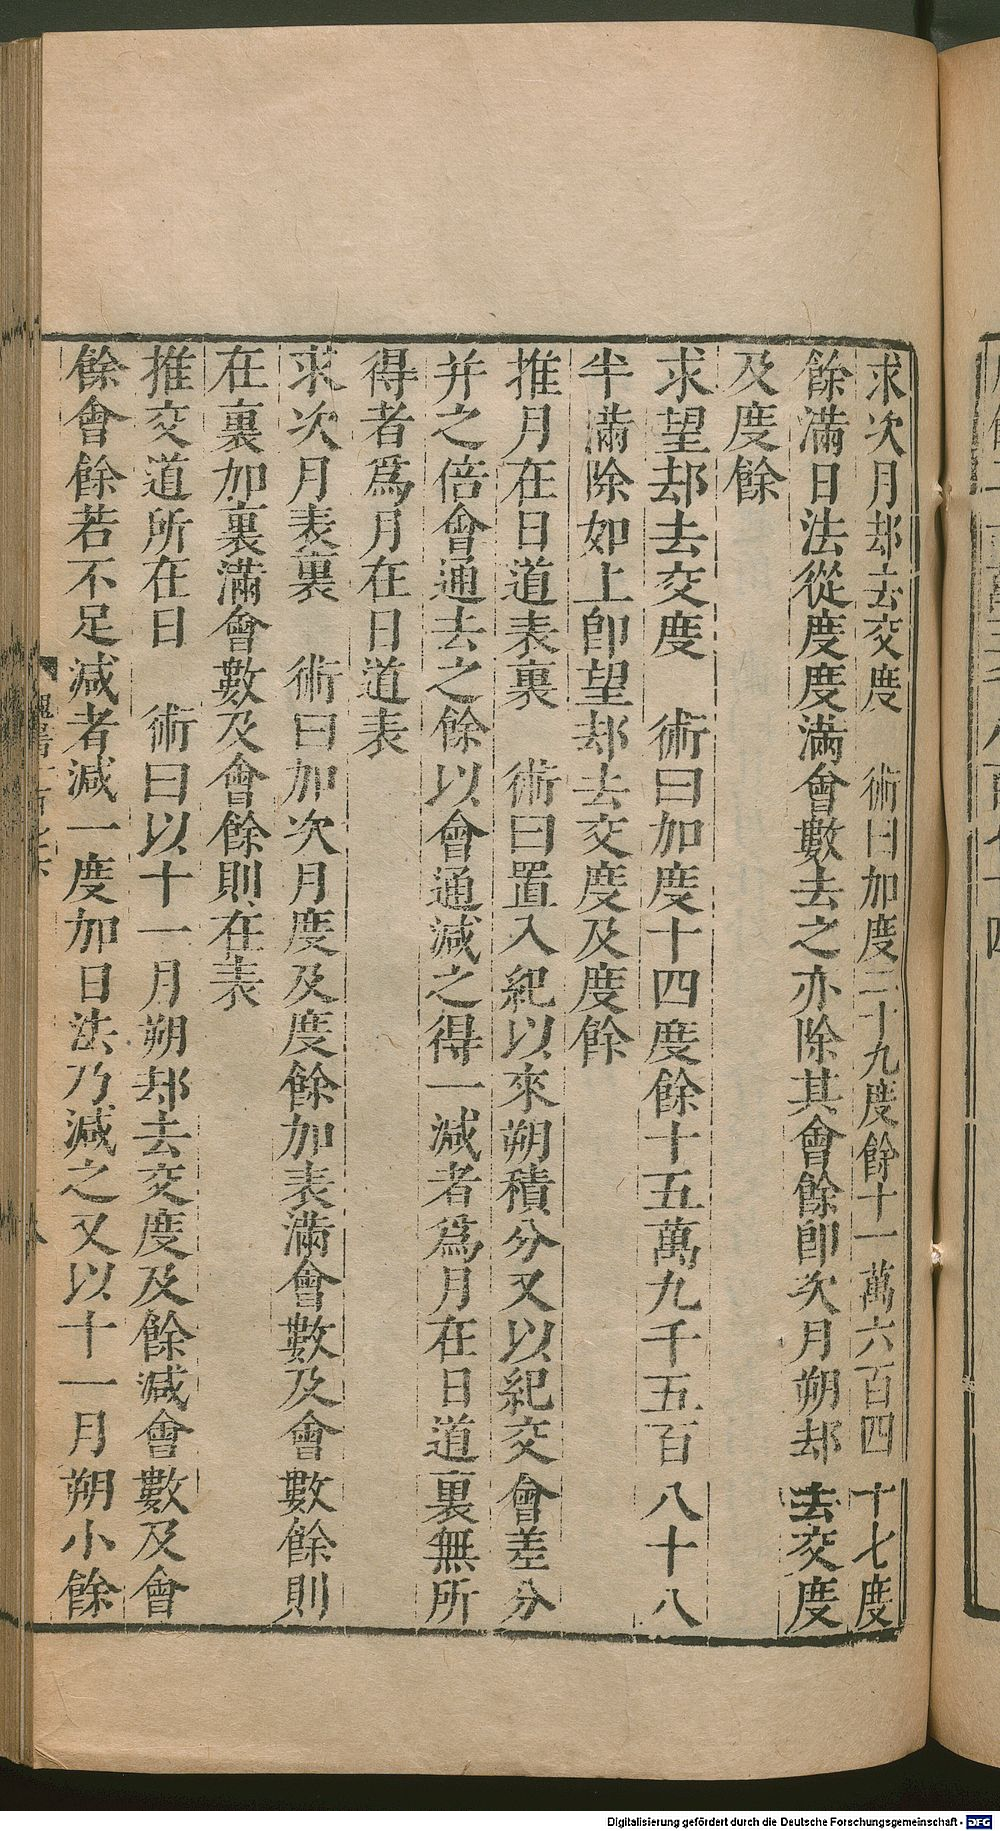 求次月却去交度　術曰加度二十九度餘十一萬六百四十七度
餘滿日法從度度滿會數去之亦除其會餘卽次月朔却去交度
及度餘
求望却去交度　術曰加度十四度餘十五萬九千五百八十八
半滿除如上卽望却去交度及度餘
推月在日道表裏　術曰置入紀以來朔積分又以紀交會差分
并之倍會通去之餘以會通減之得一減者爲月在日道裏無所
得者爲月在日道表
求次月表裏　術曰加次月度及度餘加表滿會數及會數餘則
在裏加裏滿會數及會餘則在表
推交道所在日　術曰以十一月朔却去交度及餘減會數及會
餘會餘若不足減者減一度加日法乃減之又以十一月朔小餘
Digitalisierung gefördert durch die Deutsche Forschungsgemeinschaft - DFG